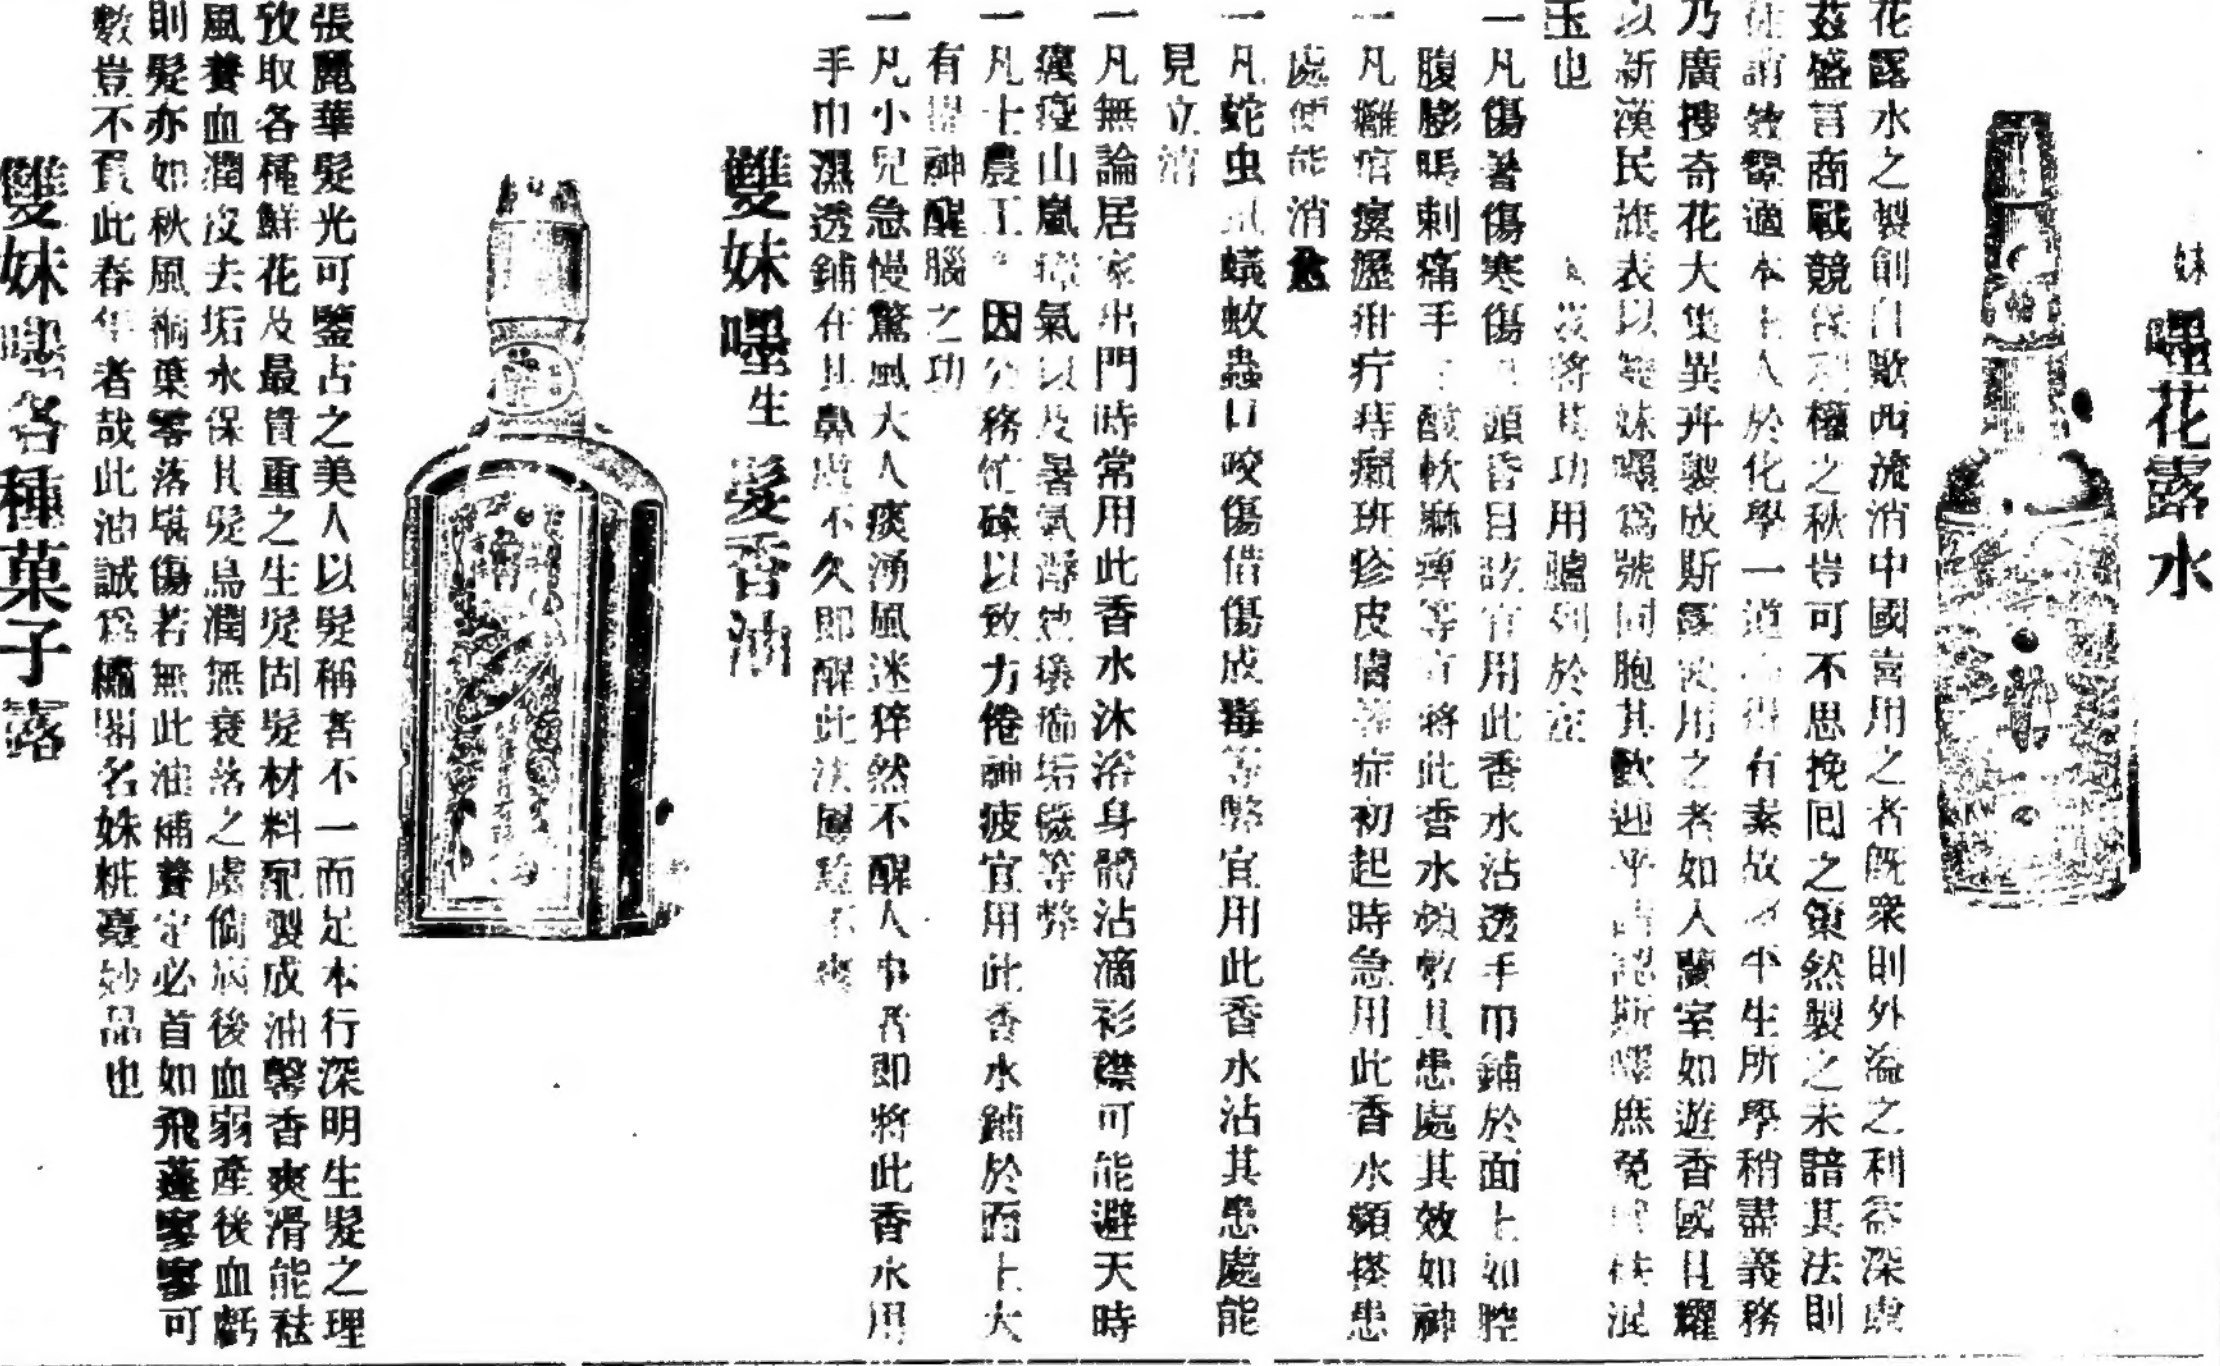 妹嚜花露水
花露水之製創自歐西流消中國喜用之者既衆則外溢之利益深慮
茲盛言商戰競爭利權之秋豈可不思挽囘之策然製之未諳其法則
徒誚效顰適本主人於化學一道有素故以半生所學稍盡義務
乃廣搜奇花大集異卉製成斯露使用之者如人蘭室如遊香國且耀
以新漢民旗表以雙妹嚜爲號同胞其歡迎乎請認斯嚜庶免魚珠混
玉也
將其功用臚列於左
一凡傷暑傷寒傷頭昏目眩宜用此香水沾透手巾鋪於面上如腔
腹膨脹刺痛手酸軟麻痺等宜將此香水頻敷其患處其效如神
一凡癰疽瘰癧疳疔痔癩斑疹皮膚等症初起時急用此香水頻搽患
處便能消愈
一凡蛇虫虱蟻蚊蟲口咬傷借傷成毒等弊宜用此香水沾其患處能
見立消
一凡無論居家出門時常用此香水沐浴身體沾滴衫襟可能避天時
癘疫山嵐瘴氣以及暑氣等弊
一凡士農工因公務忙碌以致力倦神疲宜用此香水鋪於面上大
有提神醒腦之功
一凡小兒急慢驚風大人痰湧風迷猝然不醒人事者即將此香水用
手巾濕透鋪在其鼻處不久即醒此法屢驗不爽
雙妹嚜生髮香油
張麗華髮光可鑒古之美人以髮稱者不一而足本行深明生髮之理
攷取各種鮮花及最貴重之生髮固髮材料配製成油馨香爽滑能袪
風養血潤皮去垢水保其髮烏潤無衰落之虞倘病後血弱產後血虧
則髮亦如秋風稿葉零落堪傷若無此油補養定必首如飛蓬寥寥可
數豈不負此春華者哉此油誠爲繡閣名姝粧臺妙品也
雙妹嚜各種菓子露